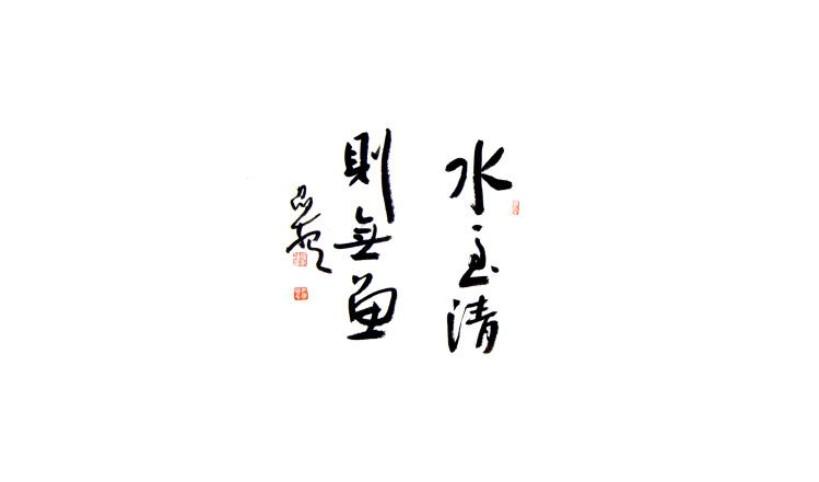 水至清
則無魚